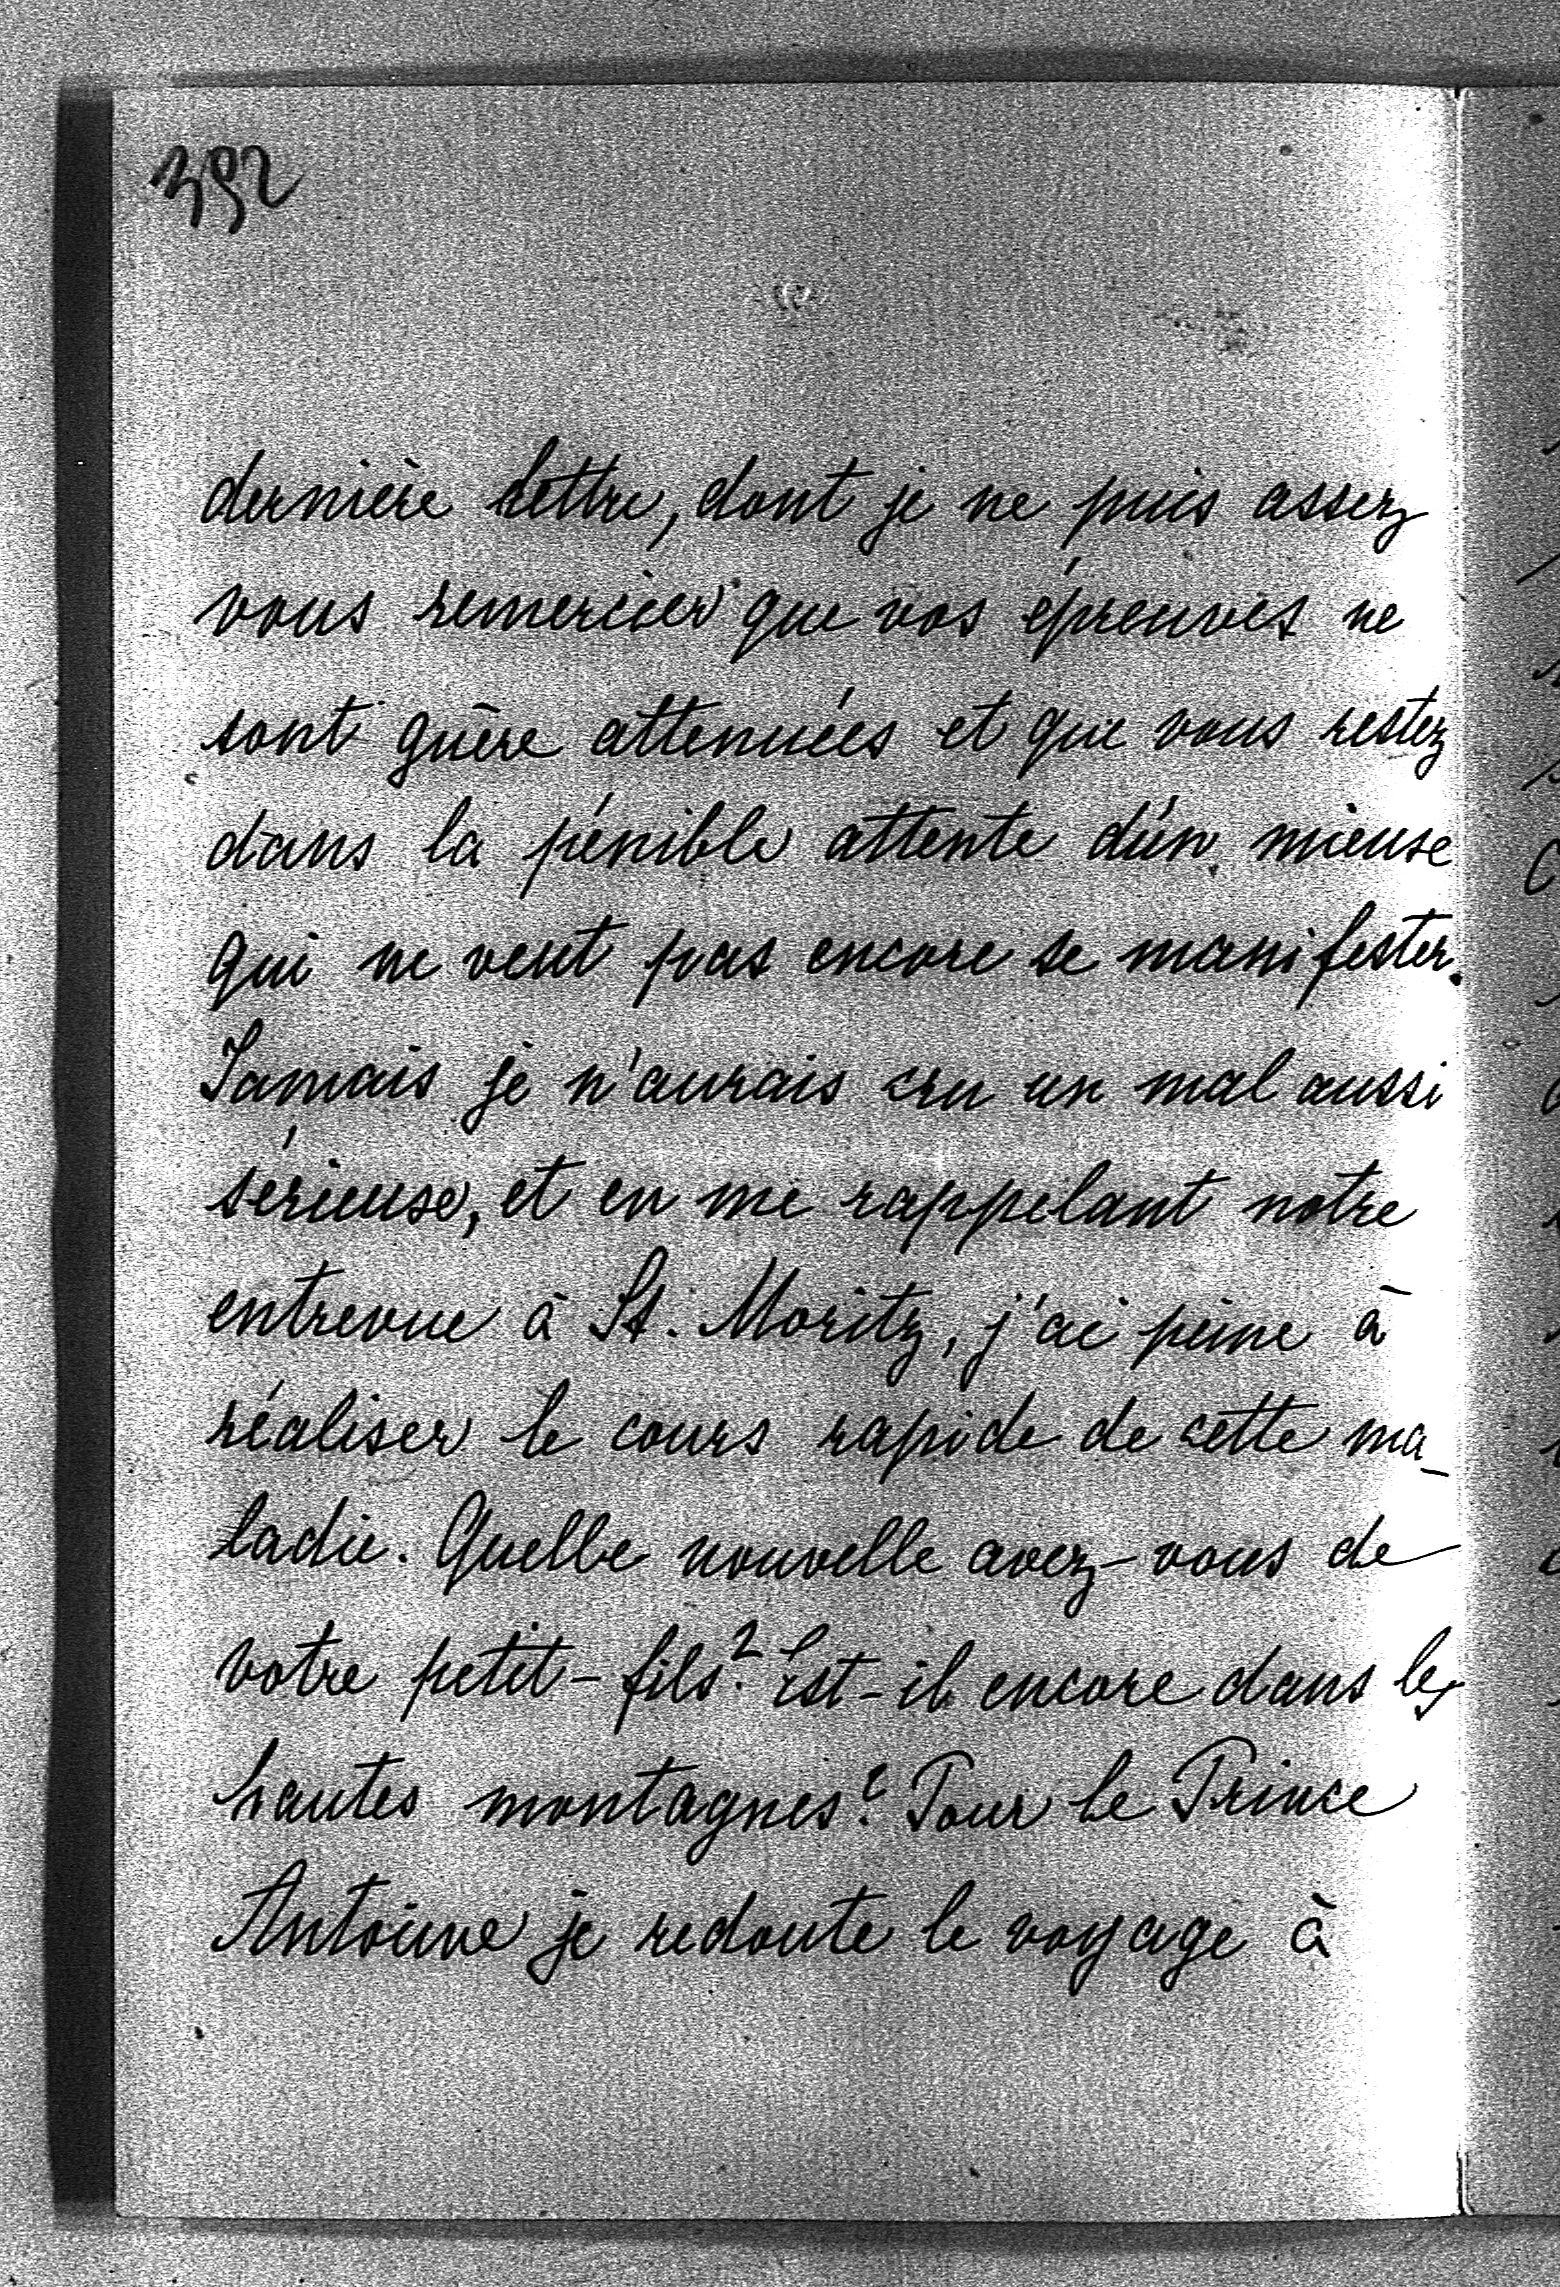 392
dernière lettre, dont je ne puis assez
vous remercier que vos épreuves ne
sont guère attenuées et que vous restez
dans la pénible attente d'un mieuse
qui ne veut pas encore se manifester.
Jamais je n'aurais cru un mal aussi
sérieuse, et en me rappelant notre
entrevue à St. Moritz, j'ai peine à
réaliser le cours rapide de cette ma-
ladie. Quelle nouvelle avez-vous de
votre petit-fils? Est-il encore dans les
hautes montagnes? Pour le Prince
Antoine je redoute le voyage à